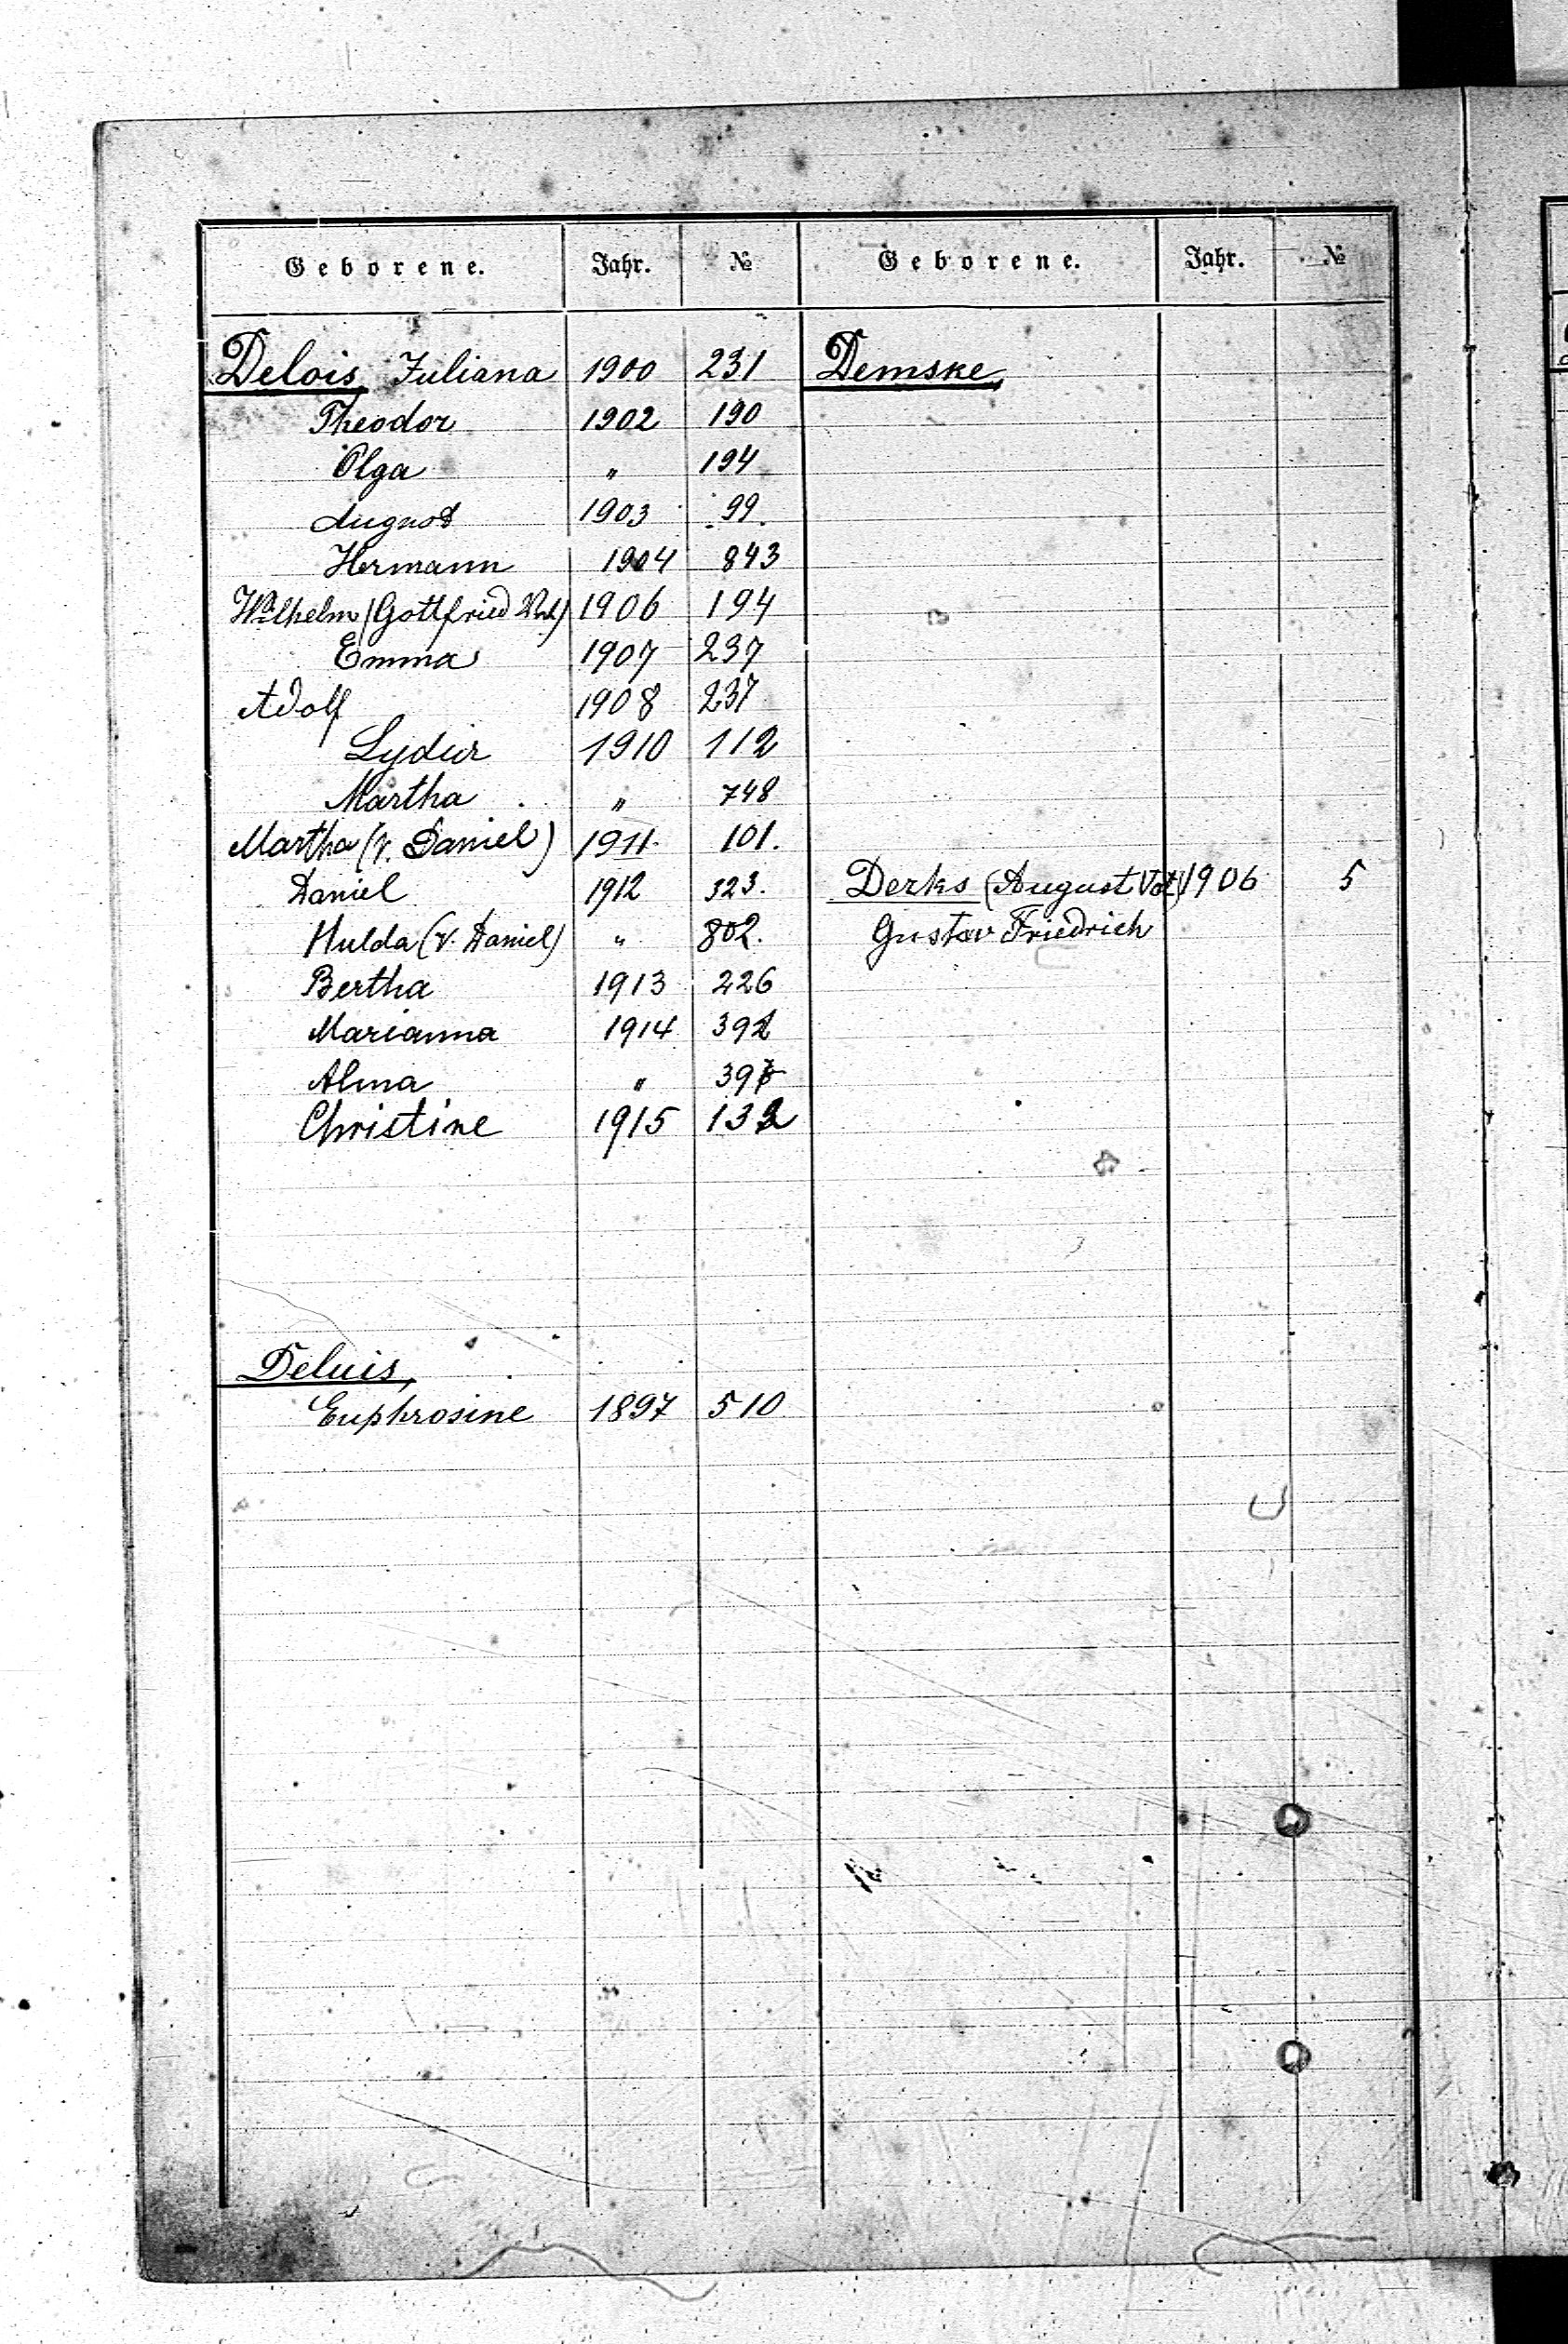 Geborene. Jahr. №
Delois, Juliana 1900 231
Theodor 1902 190
Olga " 194
August 1903 99.
Hermann 1904 843
Wilhelm (Gottfried 1906 194
Emma 1907 237
Adolf 1908 237
Lydia 1910 112
Martha " 748
Martha (v. Daniel) 1911 101.
Daniel 1912 323.
Hulda (v. Daniel) " 802.
Bertha 1913 226
Marianna 1914 392
Alma "
Christine 1915 132
Deluis,
Euphrosine 1897 510
Geborene. Jahr. №
Demske,
Derks (August Vat) 1906 5
Gustav Friedrich